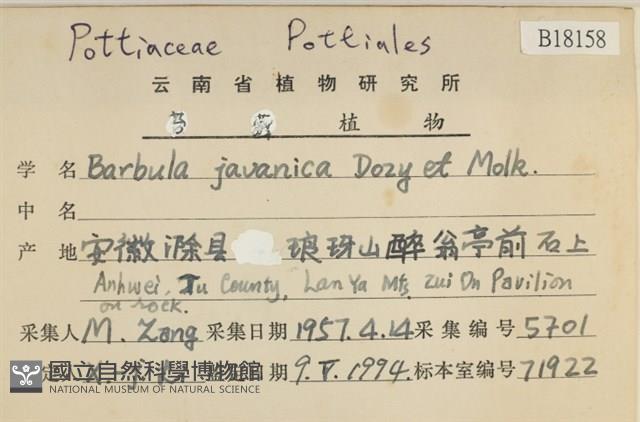 Pottiaceae Pottiales
B18158
云南省植物研究所
植物
学 名 Barbula javanica Dozy et Molk.
中 名
产 地 安徽滁县 琅玡山醉翁亭前石上
Anhwei, Tu County, Lan Ya Mts, Zui On Pavilion
on rock.
采集人 M. Zang 采集日期 1957.4.14 采集编号 5701
日期 9.V.1994. 标本室编号 71922
國立自然科學博物館
NATIONAL MUSEUM OF NATURAL SCIENCE